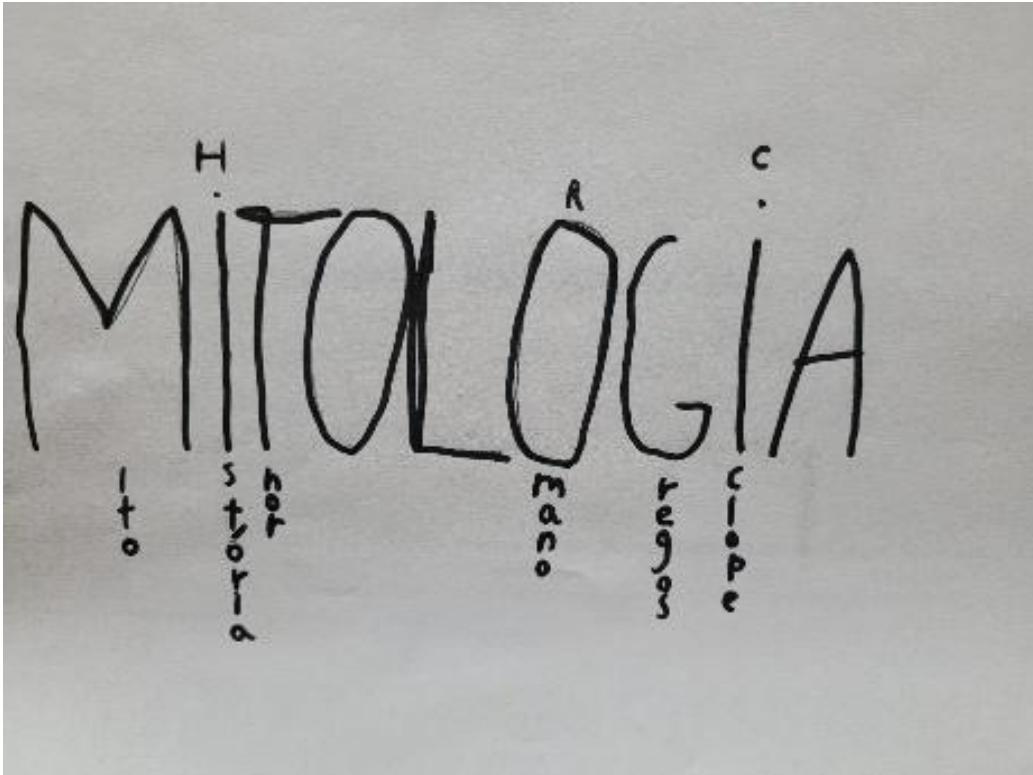 H
C
R
MITOLOGIA
ito
stória
hor
mano
regos
clope